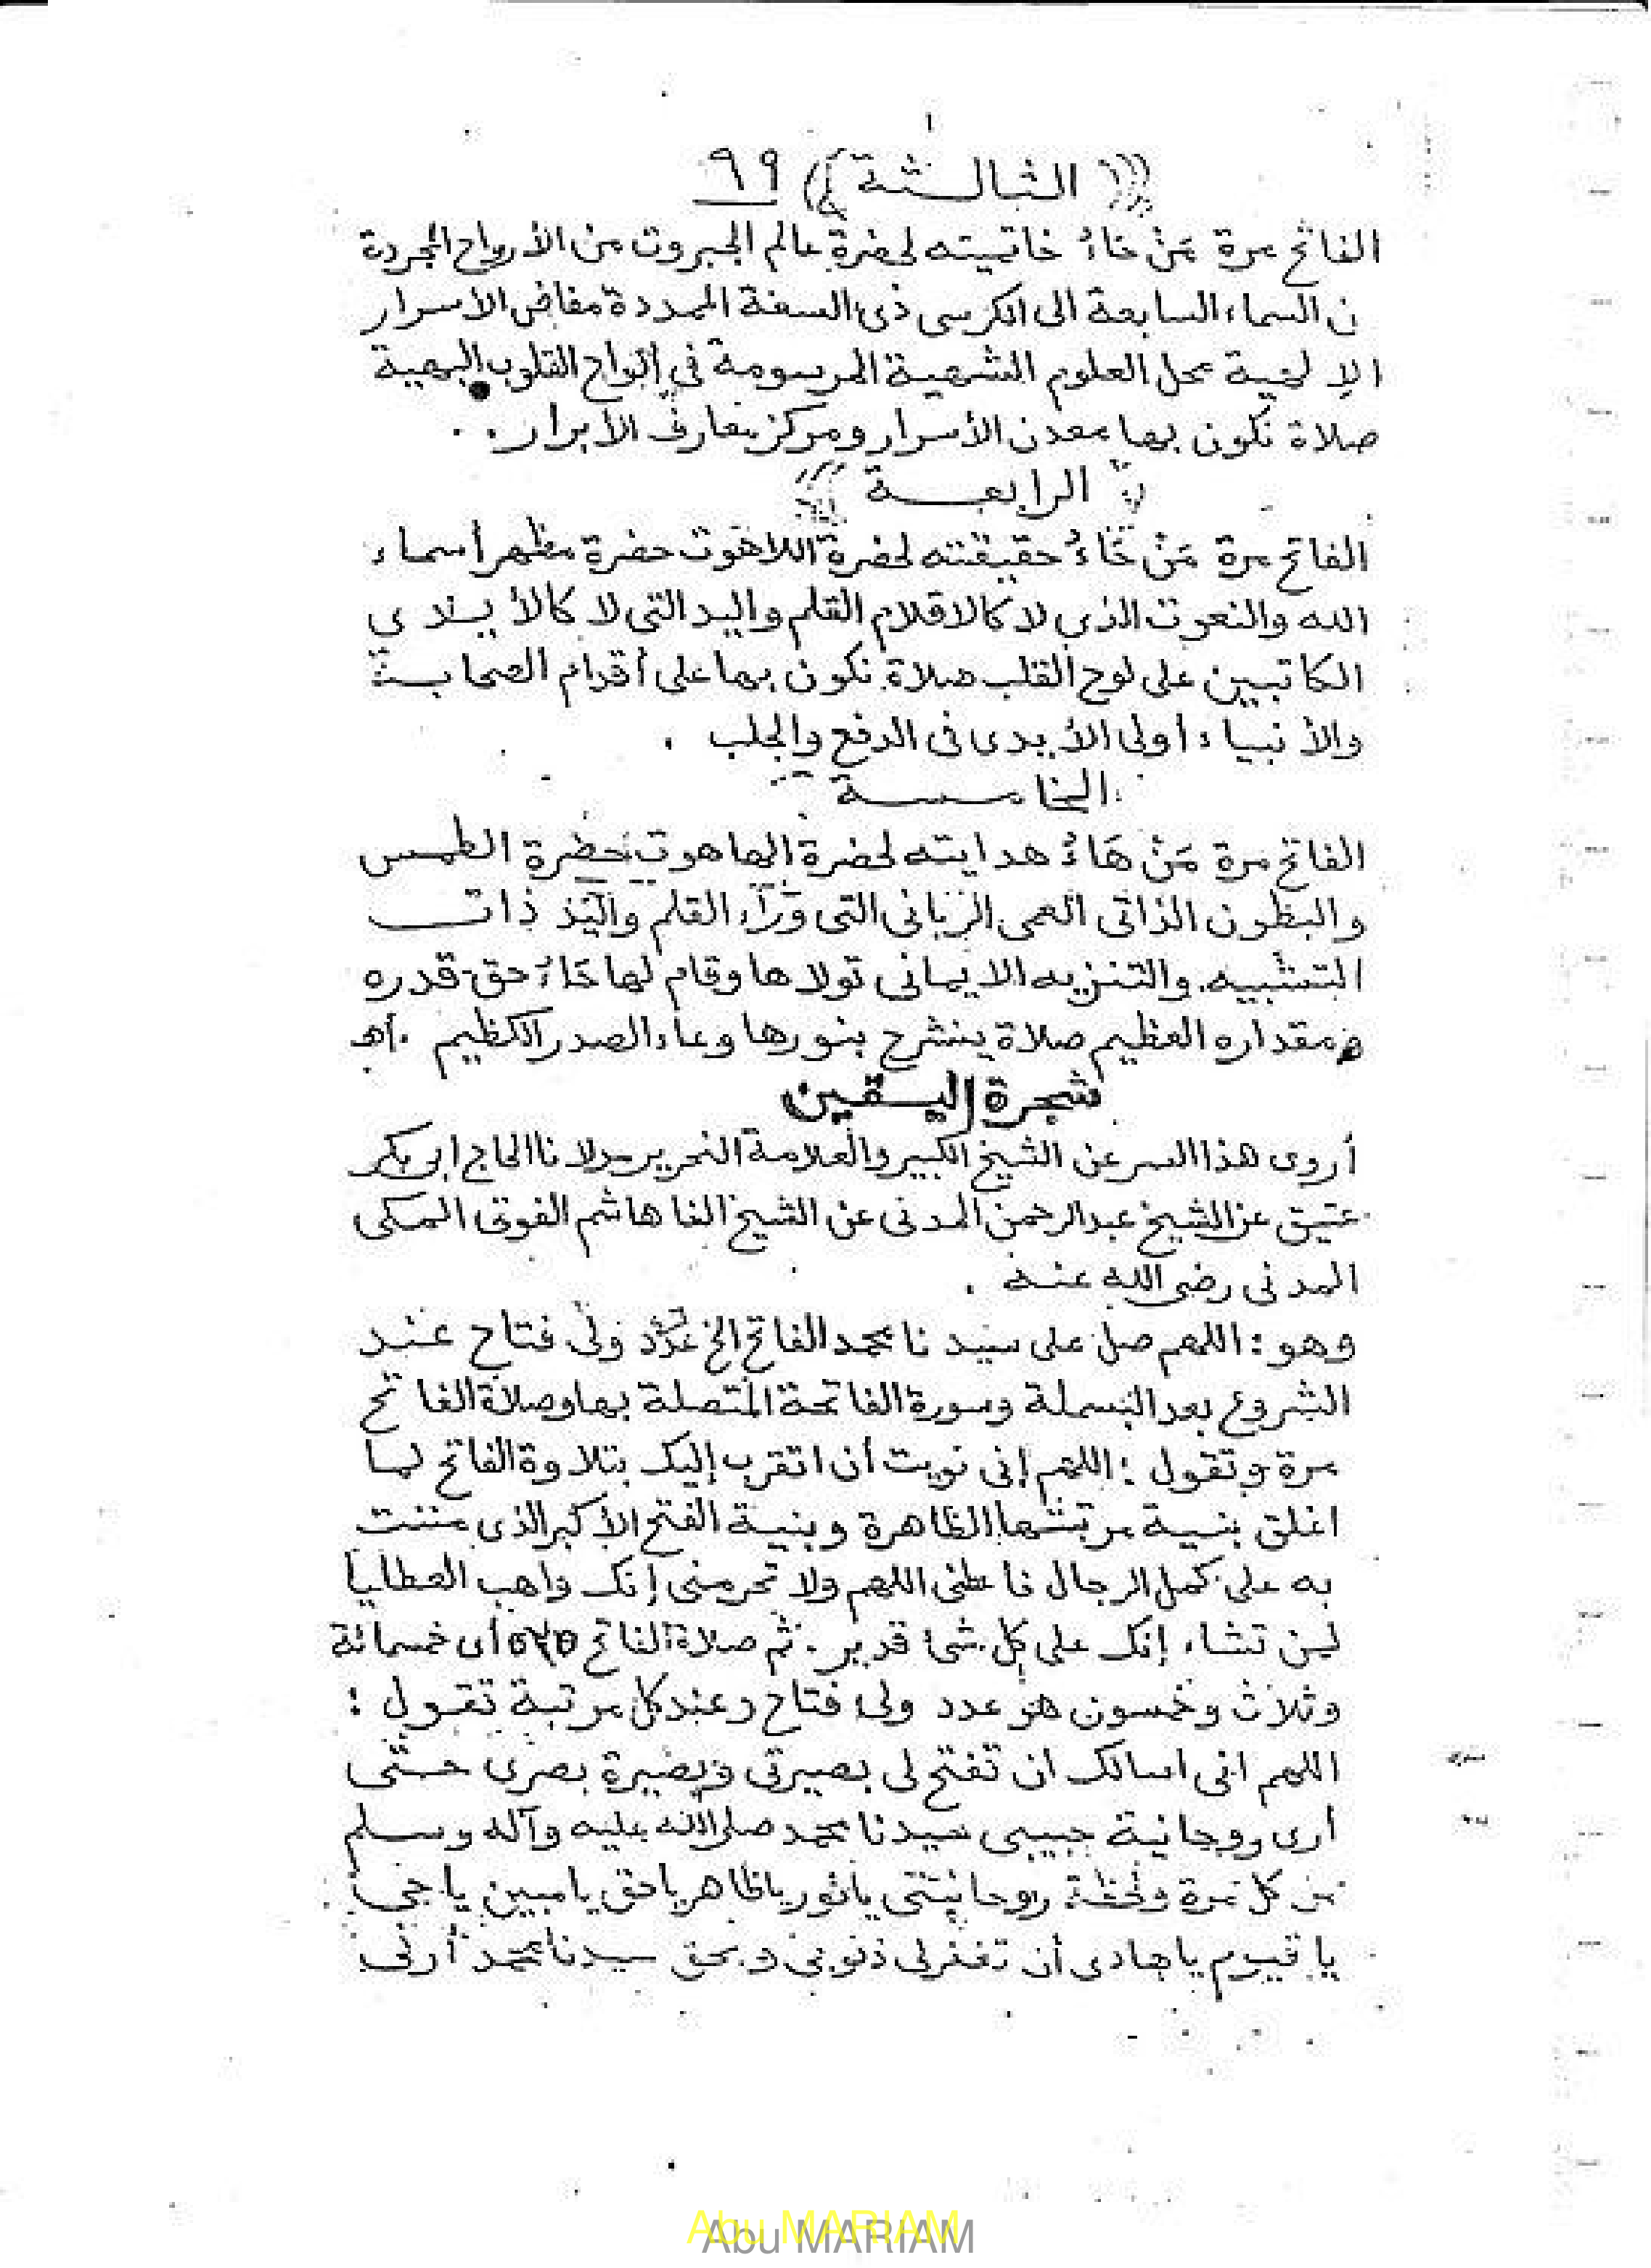 الثالثة ٦٩
الفاتح مرة مَنْ خاءُ خاتميته لحضرة عالم الجبروت من الأرواح المجردة
ن السماء السابعة الى الكرسى ذى السعة الممددة مفاض الأسرار
الإلهية محل العلوم الشهية المرسومة في ألواح القلوب البهية
صلاة نكون بها معدن الأسرار ومركز معارف الأبرار .
الرابعة
الفاتح مرة مَنْ حَاءُ حقيقته لحضرة اللاهوت حضرة مظهر أسماء
الله والنعوت الذى لا كالاقلام القلم واليد التى لا كالأيدي
الكاتبين على لوح القلب صلاة نكون بها على أقدام الصحابة
والأنبياء أولى الأيدى فى الدفع والجلب .
الخامسة
الفاتح مرة مَنْ هَاءُ هدايته لحضرة الهاهوت حضرة الطمس
والبطون الذاتى العمى الربانى التى وَرَآء القلم واليد ذات
التشبيه والتنزيه الايمانى تولاها وقام لها حاء حق قدره
ومقداره العظيم صلاة ينشرح بنورها وعاء الصدر الكظيم . أهـ
شجرة اليقين
أروى هذا السر عن الشيخ الكبير والعلامة النحرير مولانا الحاج ابو بكر
عتيق عن الشيخ عبدالرحمن المدنى عن الشيخ الفا هاشم الفوتى المكى
المدنى رضى الله عنه .
وهو : اللهم صل على سيدنا محمد الفاتح الخ عدد ولى فتاح عند
الشروع بعد البسملة وسورة الفاتحة المتصلة بها وصلاة الفاتح
مرة وتقول : اللهم إنى نويت أن اتقرب إليك بتلاوة الفاتح لما
اغلق بنية مرتبتها الظاهرة وبنية الفتح الأكبر الذى مننت
به على كمل الرجال فأعطنى اللهم ولا تحرمنى إنك واهب العطايا
لمن تشاء إنك على كل شئ قدير . ثم صلاة الفاتح أى خمسمائة
وثلاث وخمسون هو عدد ولى فتاح وعند كل مرتبة تقول :
اللهم انى اسالك ان تفتح لى بصيرتى وبصيرة بصرى حتى
أرى روحانية حبيبى سيدنا محمد صلى الله عليه وآله وسلم
من كل مرة ولحظة روحانيتى يا نور يا ظاهر يا حق يا مبين يا حي
يا قيوم يا هادى أن تغفر لى ذنوبى وبحق سيدنا محمد أرنى
Abu MARIAM
Abu MARIAM